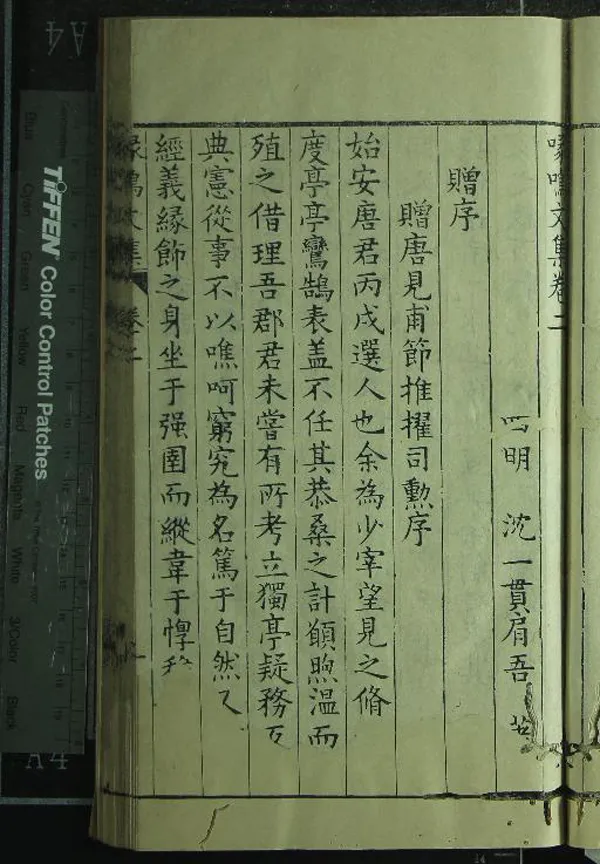 喙鳴文集卷二
四明 沈一貫肩吾 著
贈序
贈唐見甫節推擢司勳序
始安唐君丙戌選人也余為少宰望見之脩
度亭亭鸞鵠表盖不任其恭桑之計頠煦溫而
殖之借理吾郡君未嘗有所考立獨亭疑務互
典憲從事不以噍呵窮究為名篤于自然又
經義緣飾之身坐于强圉而縱韋于惸
喙鳴文集 卷二
A4
TIFFEN Color Control Patches
Blue
Cyan
Green
Yellow
Red
Magenta
White
3/Color
Black
A4